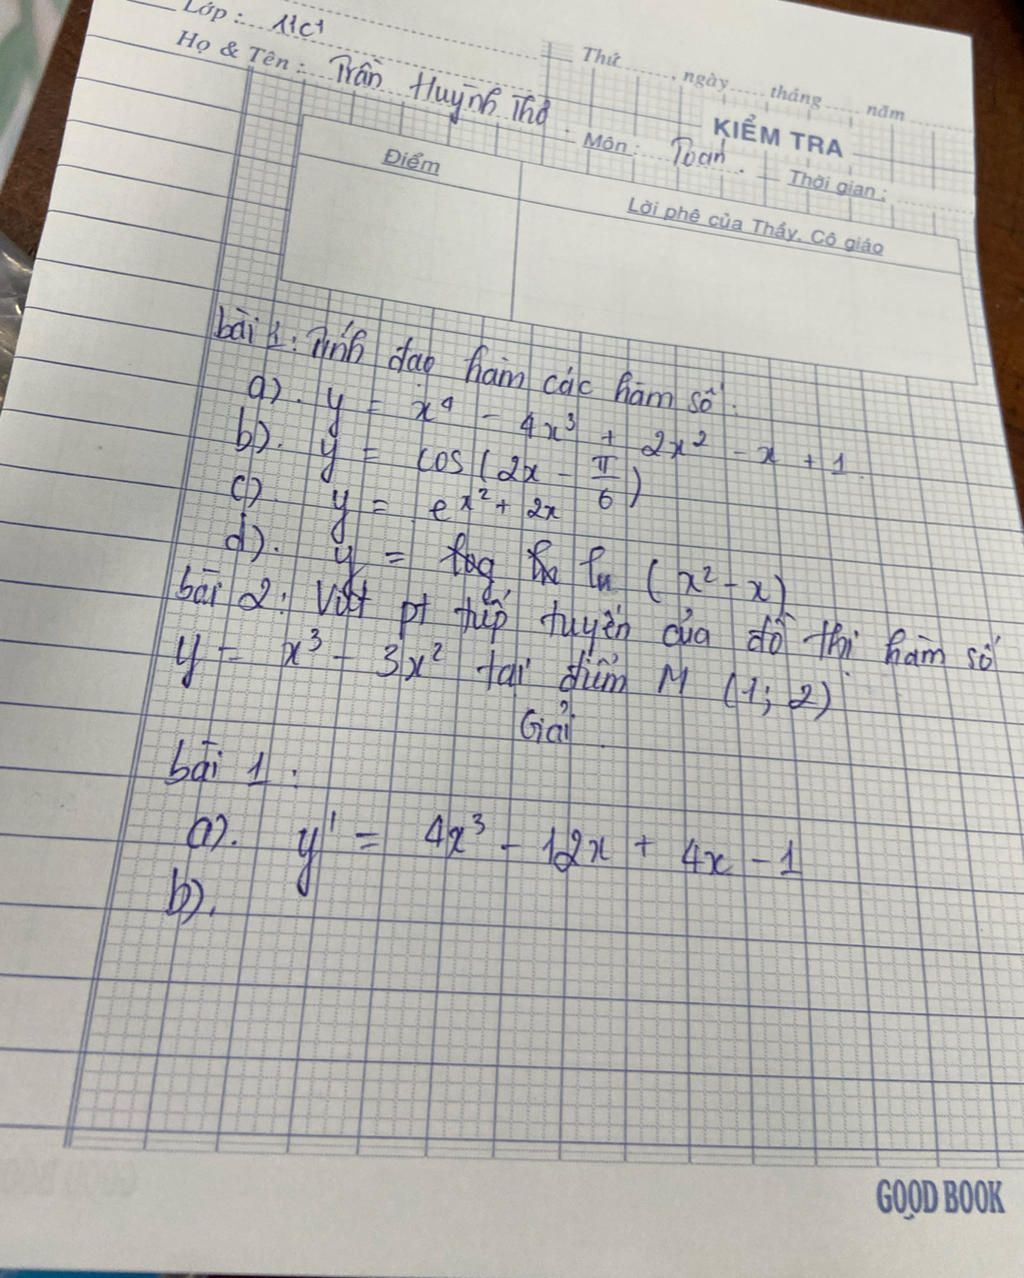 Lớp : 11C1
Họ & Tên : Trần Huỳnh Thơ
Thứ ........, ngày ..... tháng ..... năm ........
KIỂM TRA
Môn : Toán. Thời gian :
Điểm
Lời phê của Thầy, Cô giáo
bài 1: Tính đạo hàm các hàm số.
a). y = x⁴ - 4x³ + 2x² - x + 1
b). y = cos(2x - π/6)
c) y = e x² + 2x
d). y = ln (x² - x)
bài 2: Viết pt tiếp tuyến của đồ thị hàm số
y = x³ - 3x² tại điểm M (1; 2)
Giải
bài 1 :
a). y' = 4x³ - 12x + 4x - 1
b).
GOOD BOOK